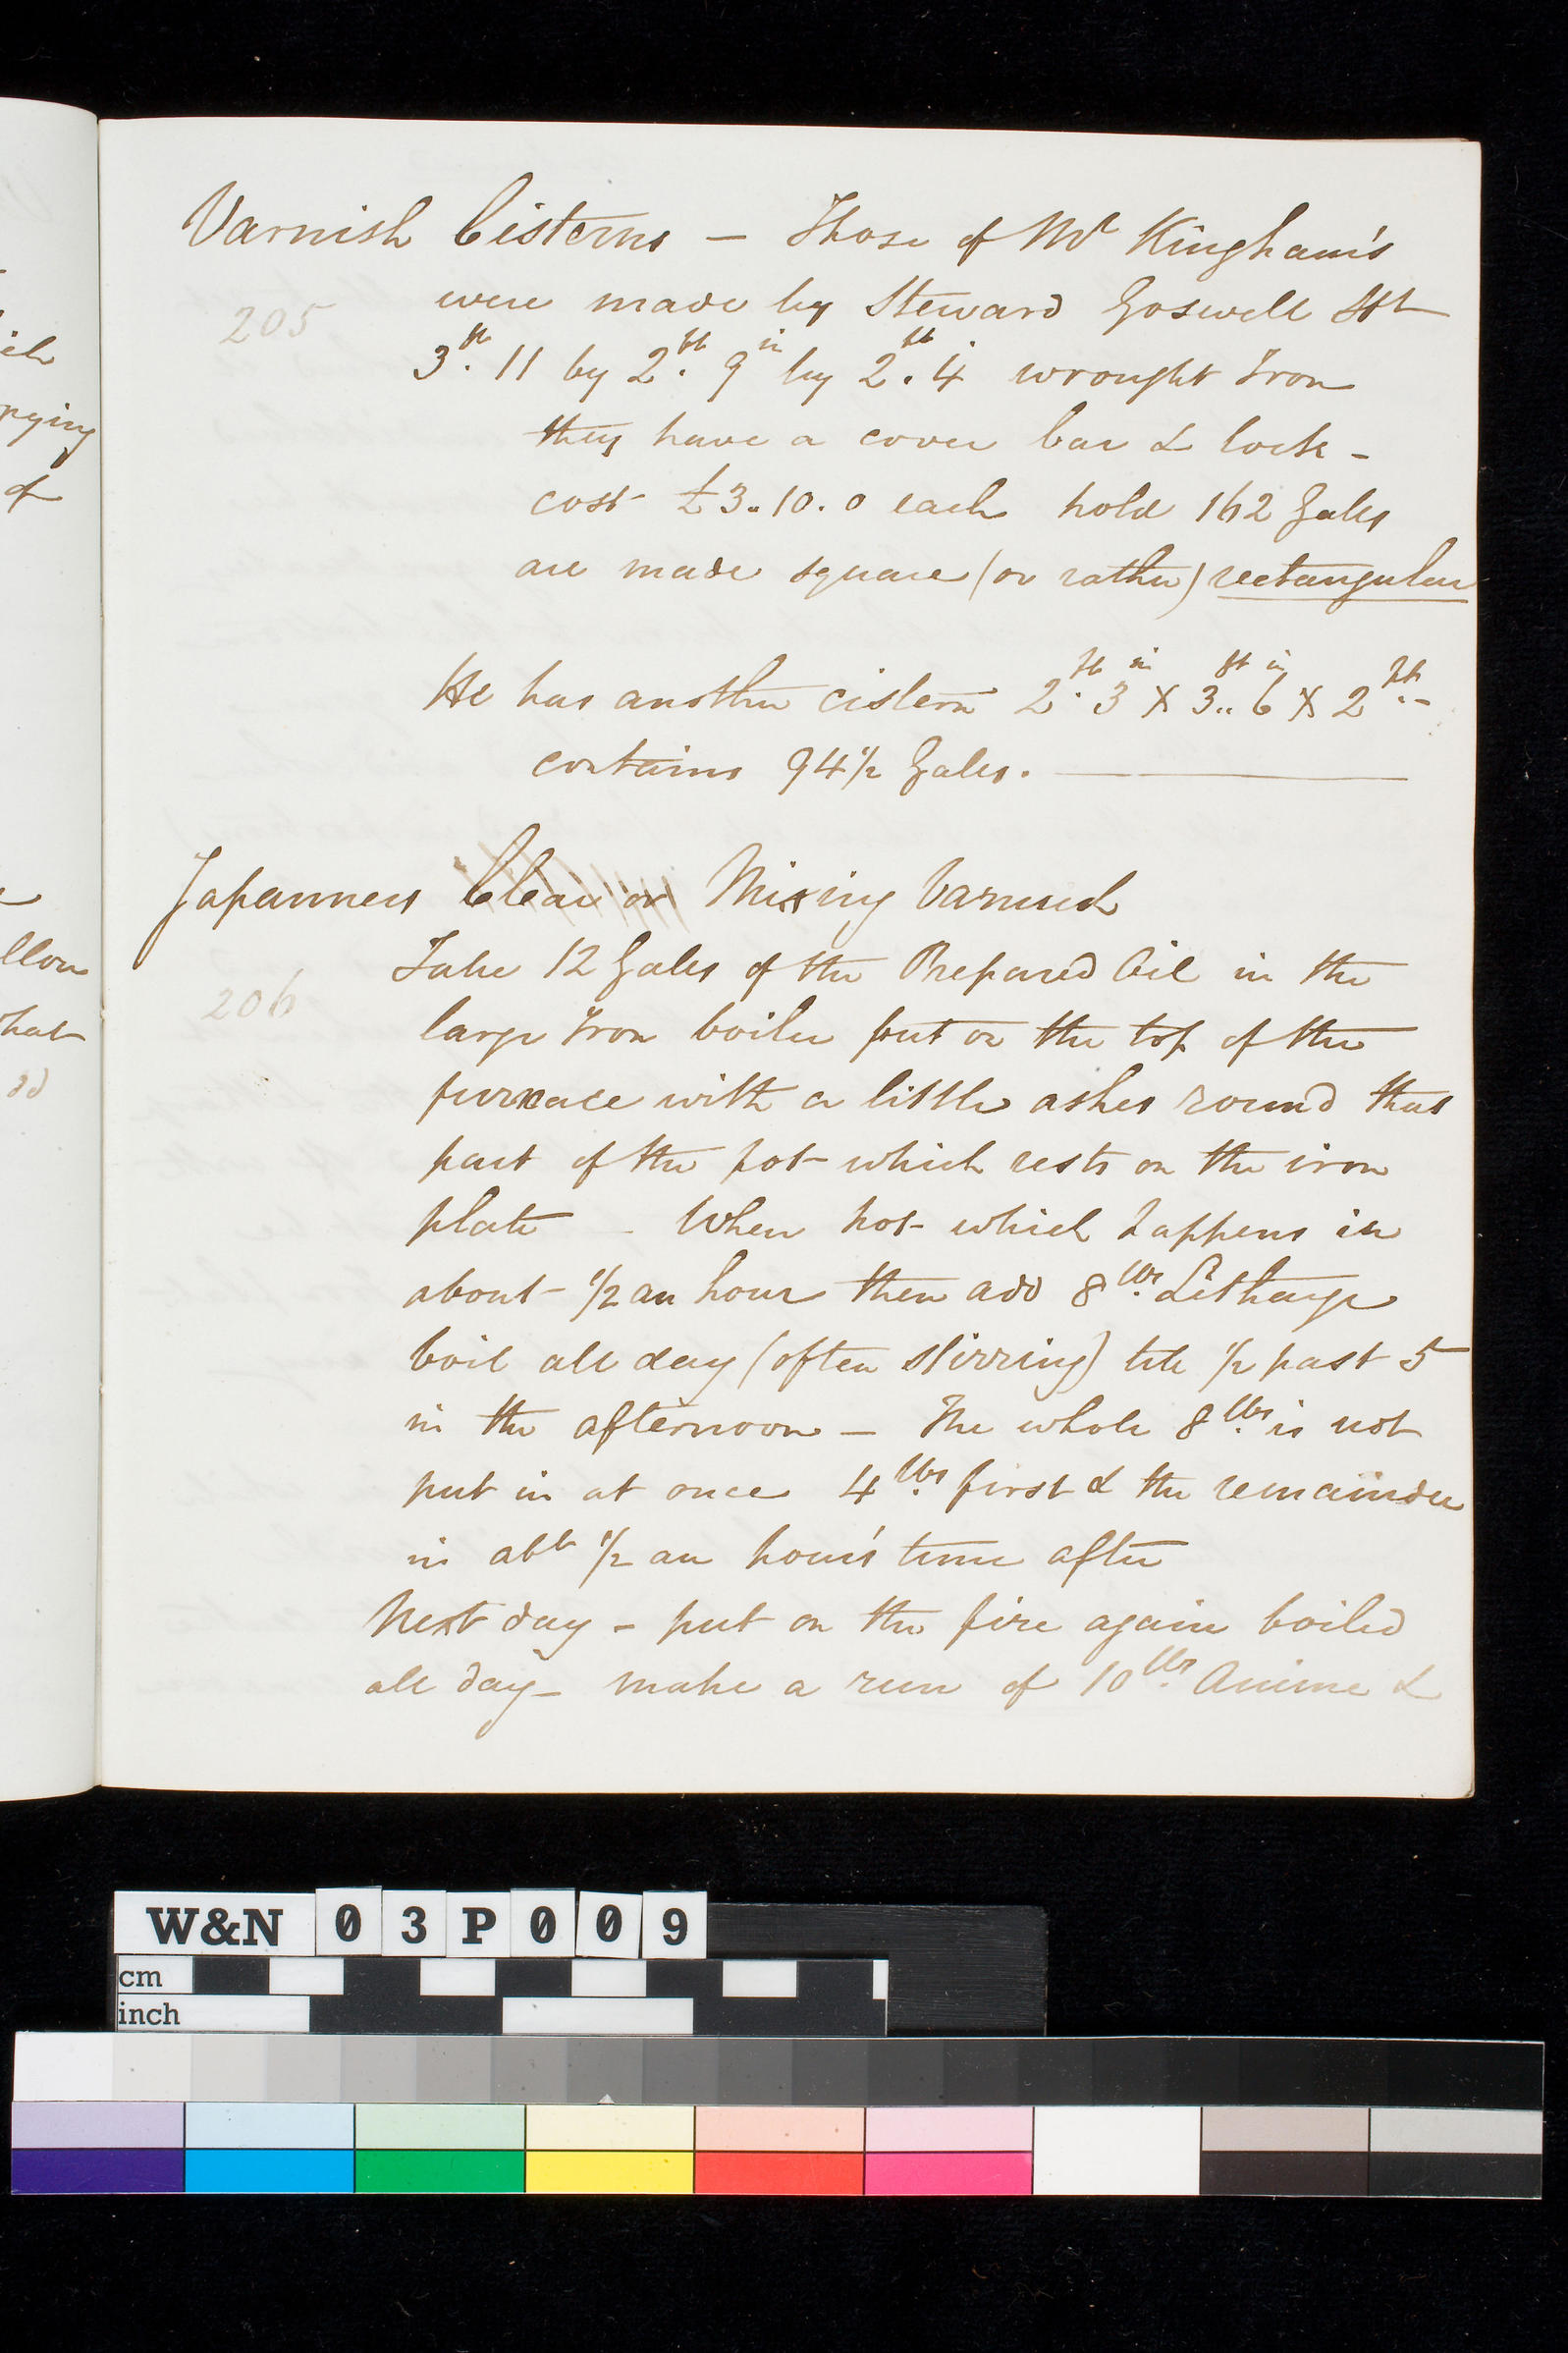 Varnish Cisterns — Those of Mr Kingham's
205
were made by Steward Goswell Stt
3ft. 11 by 2.ft 9in by 2.ft 4 wrought Iron
they have a cover bar & lock -
cost £3..10.0 each hold 162 Galls
are made square (or rather) rectangular
He has another cistern 2.ft 3in X 3..ft 6in X 2ft..-
contains 94½ Galls.
Japanners Clear or Mixing Varnish
206
Take 12 Galls of the Prepared Oil in the
large Iron boiler put on the top of the
furnace with a little ashes round that
part of the pot which rests on the iron
plate - When hot which happens in
about ½ an hour then add 8lbs. Litharge
boil all day (often stirring) till ½ past 5
in the afternoon — The whole 8lbs. is not
put in at once 4lbs. first & the remainder
in abt ½ an hour's time after
Next day - put on the fire again boiled
all day - make a run of 10lbs. Anime &
ich
of
hat
W&N 03P009
cm
inch